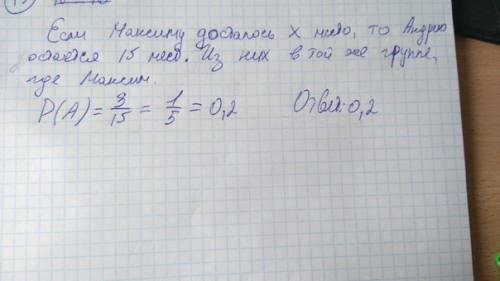 Если Максиму досталось X место, то Андрею
остаётся 15 мест. Из них в той же группе,
где Максим.
P(A) = 3/15 = 1/5 = 0,2 Ответ: 0,2